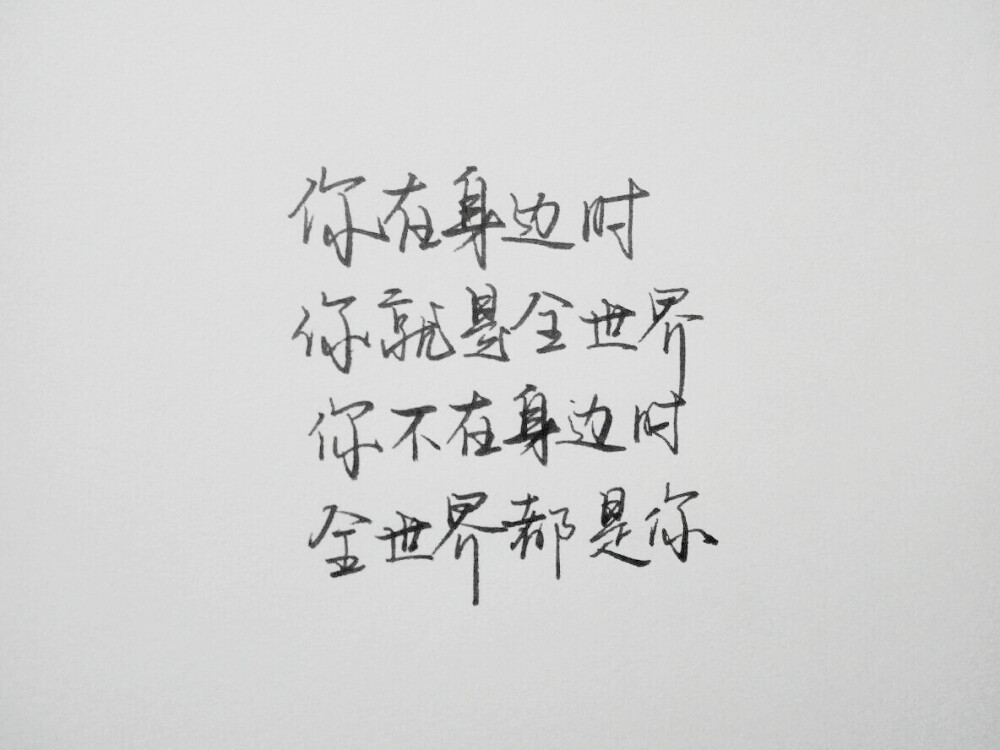 你在身边时
你就是全世界
你不在身边时
全世界都是你